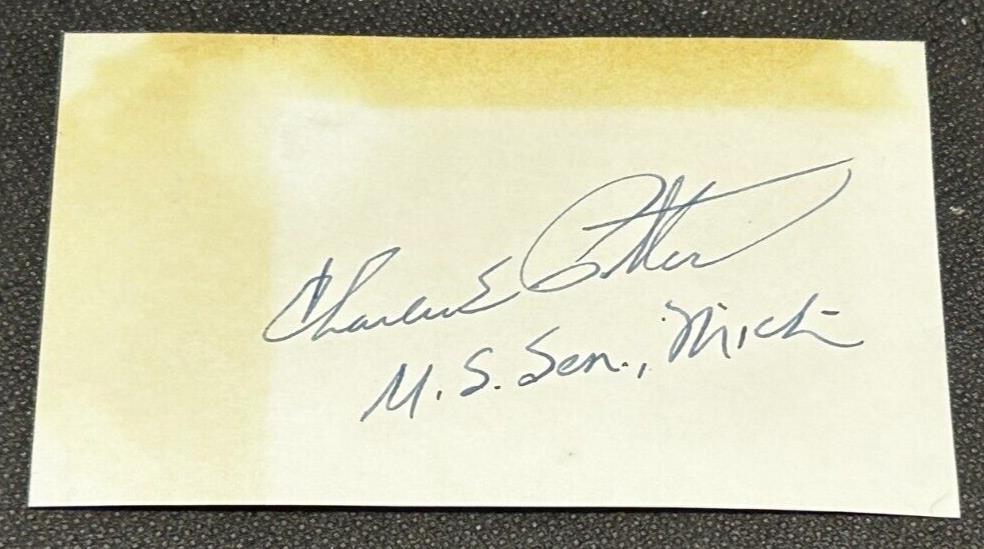 Charles E Potter
U.S. Sen., Mich